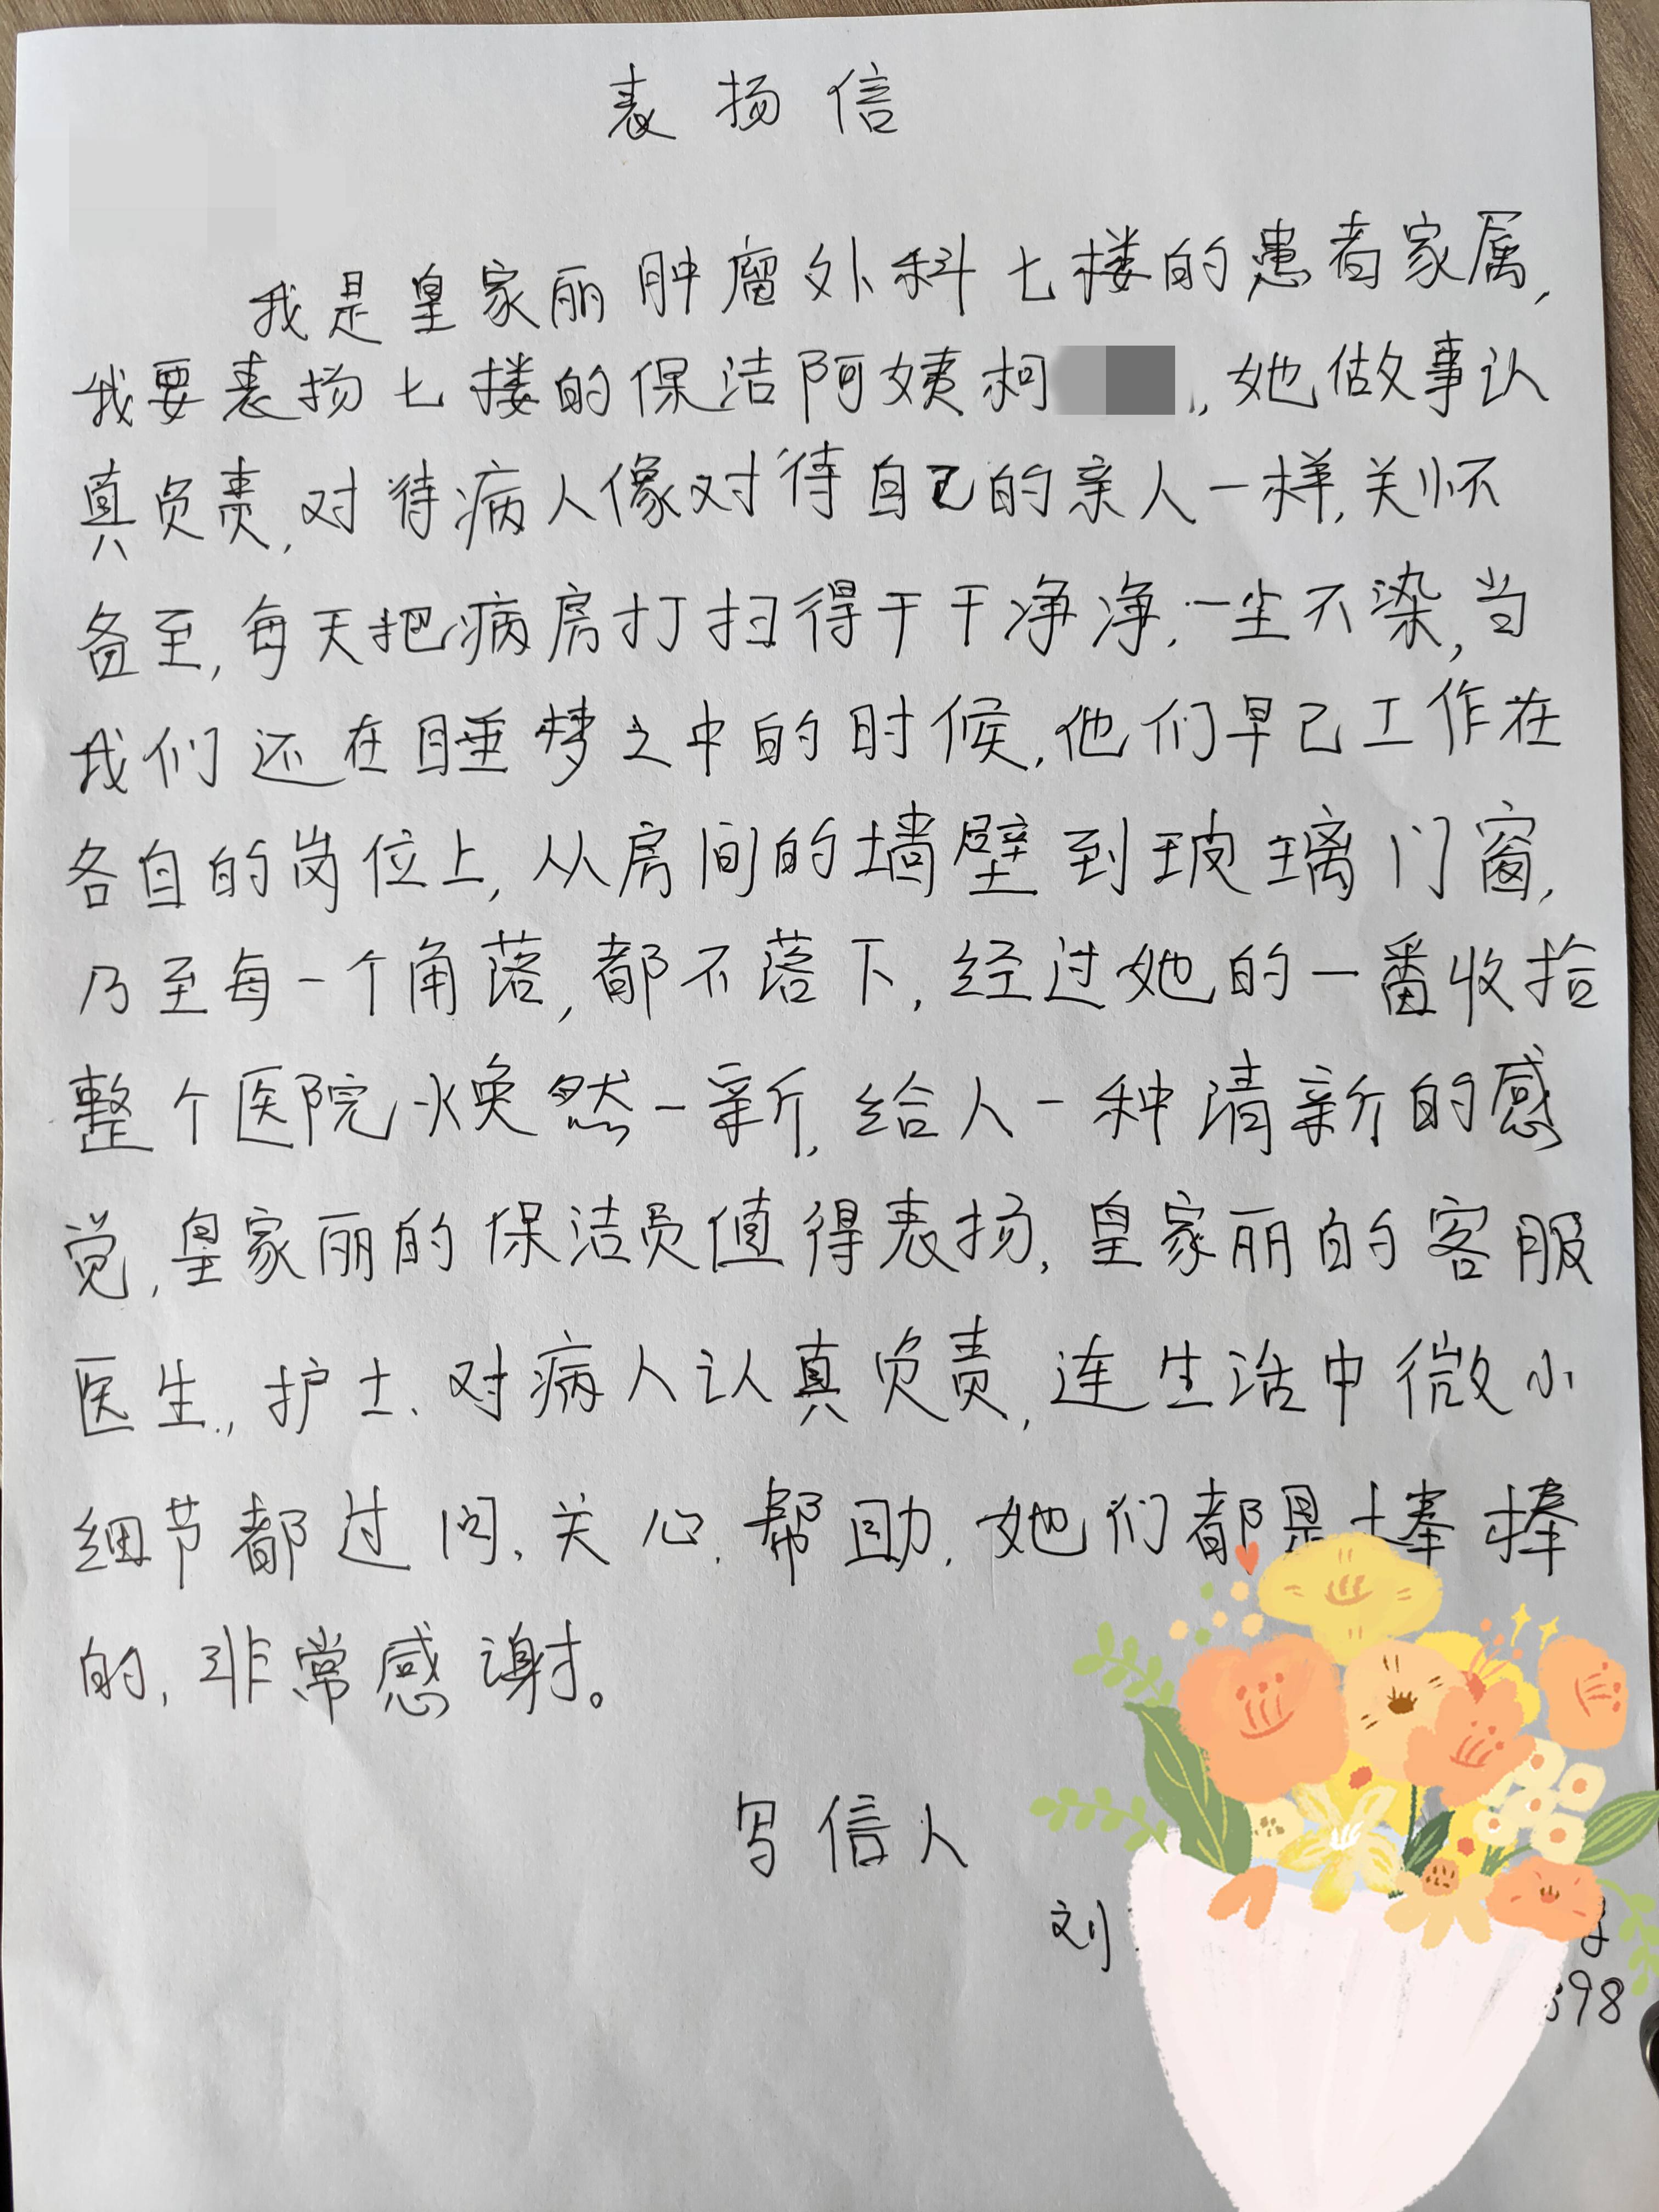 表扬信
我是皇家丽肿瘤外科七楼的患者家属,
我要表扬七楼的保洁阿姨柯,她做事认
真负责,对待病人像对待自己的亲人一样,关怀
备至,每天把病房打扫得干干净净,一尘不染,当
我们还在睡梦之中的时候,他们早已工作在
各自的岗位上,从房间的墙壁到玻璃门窗,
乃至每一个角落,都不落下,经过她的一番收拾
整个医院焕然一新,给人一种清新的感
觉,皇家丽的保洁员值得表扬,皇家丽的客服
医生,护士、对病人认真负责,连生活中微小
细节都过问,关心,帮助,她们都是棒棒
的,非常感谢。
写信人
刘
398